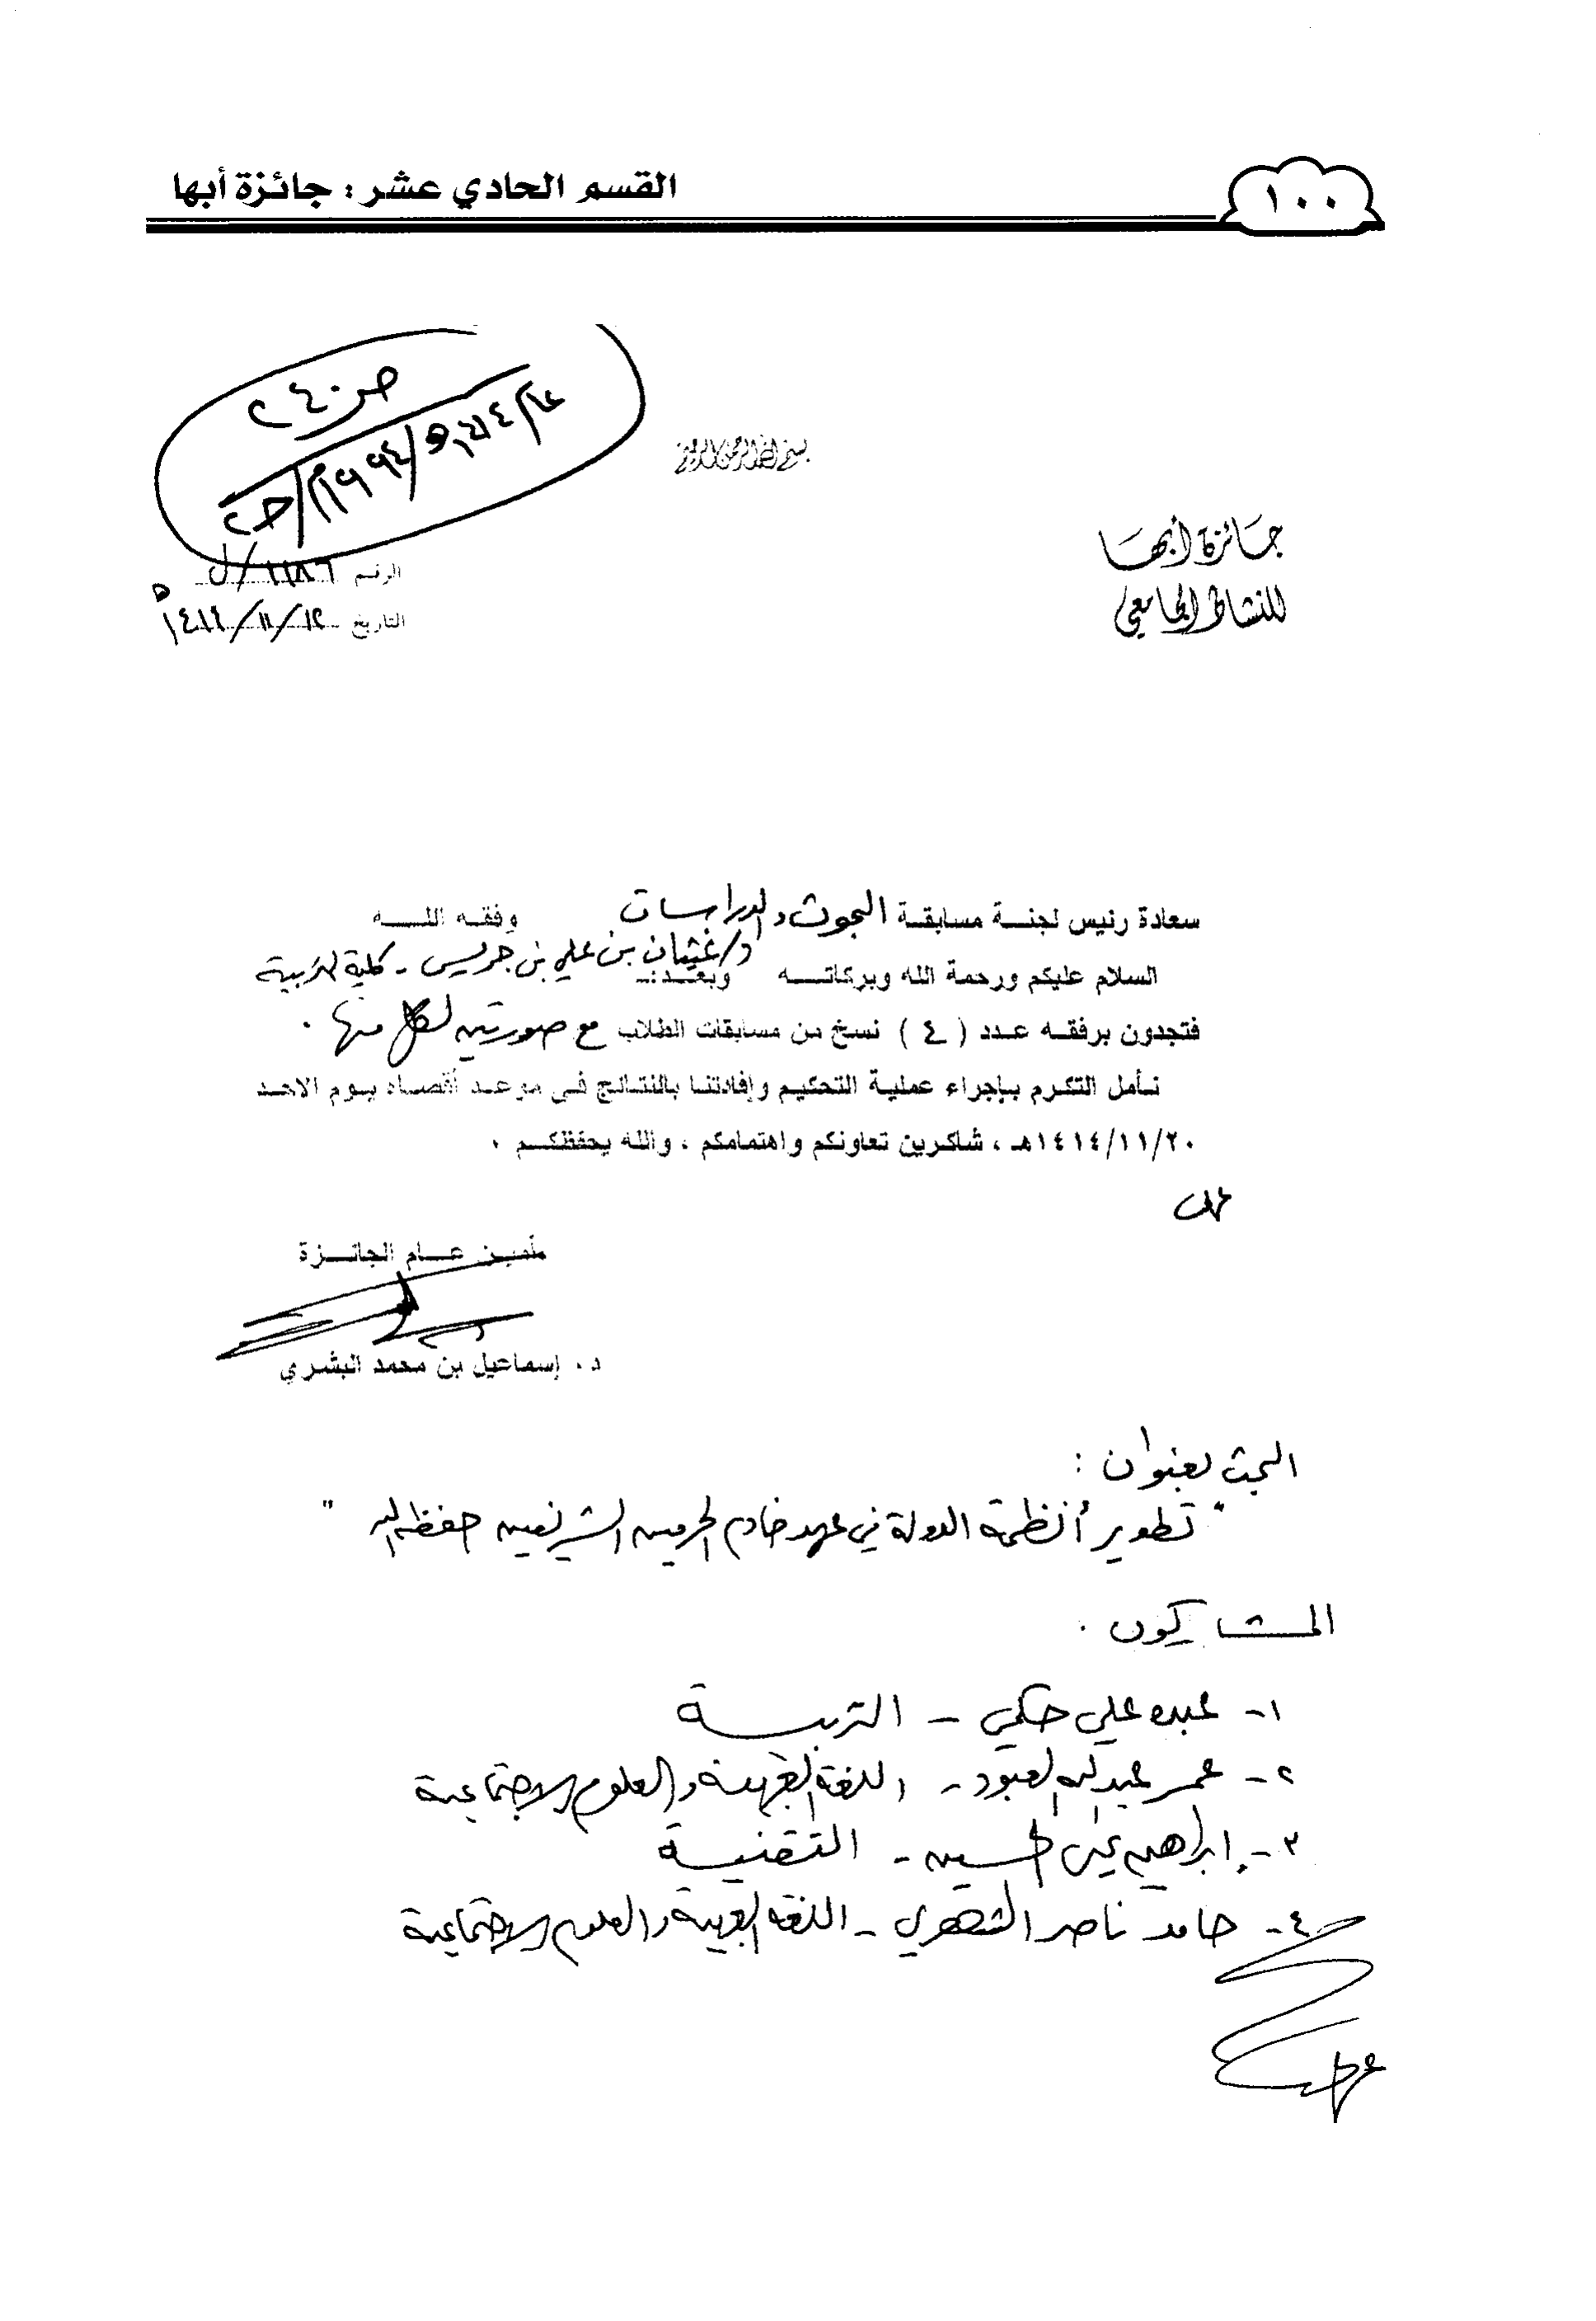 ١٠٠
القسم الحادي عشر : جائزة أبها
ص ٢٤٠
١٩٩٤م
بسم الله الرحمن الرحيم
جائزة أبها
للنشاط الجامعي
الرقم ١١٨٦/ل
التاريخ ١٤١٤/١١/١٢هـ
سعادة رئيس لجنة مسابقة البحوث والدراسات وفقه الله
د/ غيثان بن علي بن جريس - كلية التربية
السلام عليكم ورحمة الله وبركاته وبعد :-
فتجدون برفقه عدد ( ٤ ) نسخ من مسابقات الطلاب مع صورتين لكل منها .
نأمل التكرم بإجراء عملية التحكيم وإفادتنا بالنتائج في موعد أقصاه يوم الاحد
١٤١٤/١١/٢٠هـ ، شاكرين تعاونكم واهتمامكم ، والله يحفظكم .
أمين عام الجائزة
د. إسماعيل بن محمد البشري
البحث بعنوان :
" تطوير أنظمة الدولة في عهد خادم الحرمين الشريفين حفظه الله "
المشاركون .
١- عبده علي حكمي - التربية
٢- عمر عبدالله العبود - اللغة العربية والعلوم الاجتماعية
٣- إبراهيم يحيى الحسين - التقنية
٤- حامد ناصر الشهري - اللغة العربية والعلوم الاجتماعية